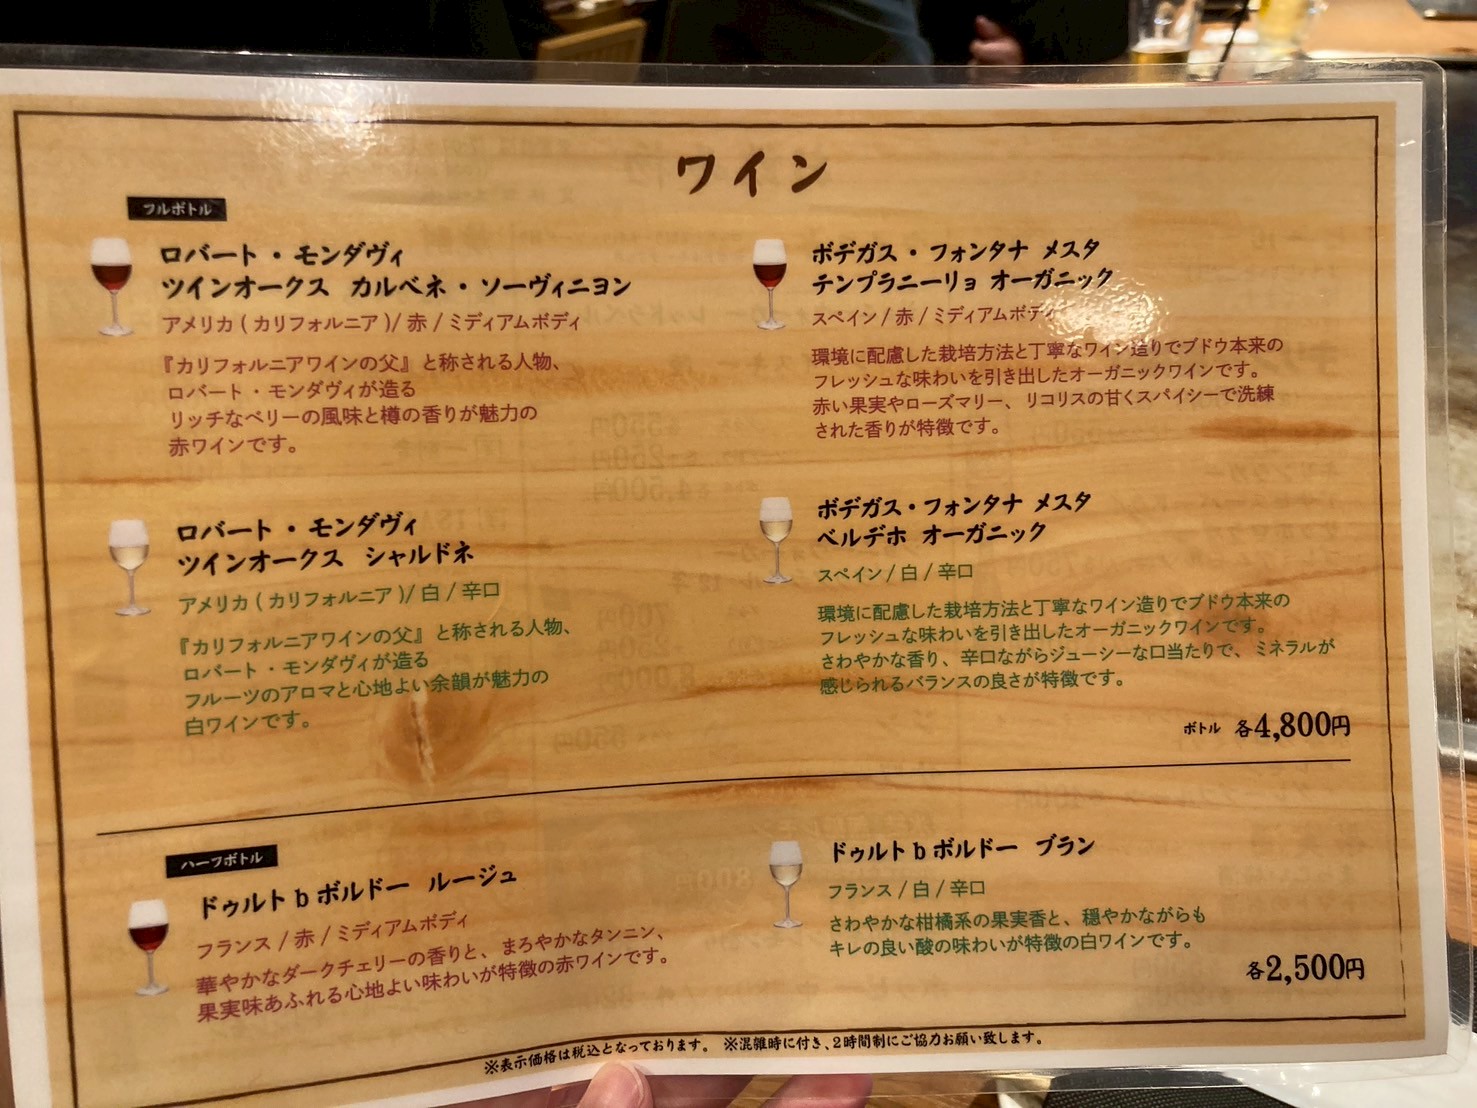 ワイン
フルボトル
ロバート・モンダヴィ
ツインオークス カルベネ・ソーヴィニヨン
アメリカ(カリフォルニア)/赤/ミディアムボディ
『カリフォルニアワインの父』と称される人物、
ロバート・モンダヴィが造る
リッチなベリーの風味と樽の香りが魅力の
赤ワインです。
ボデガス・フォンタナ メスタ
テンプラニーリョ オーガニック
スペイン/赤/ミディアムボディ
環境に配慮した栽培方法と丁寧なワイン造りでブドウ本来の
フレッシュな味わいを引き出したオーガニックワインです。
赤い果実やローズマリー、リコリスの甘くスパイシーで洗練
された香りが特徴です。
ロバート・モンダヴィ
ツインオークス シャルドネ
アメリカ(カリフォルニア)/白/辛口
『カリフォルニアワインの父』と称される人物、
ロバート・モンダヴィが造る
フルーツのアロマと心地よい余韻が魅力の
白ワインです。
ボデガス・フォンタナ メスタ
ベルデホ オーガニック
スペイン/白/辛口
環境に配慮した栽培方法と丁寧なワイン造りでブドウ本来の
フレッシュな味わいを引き出したオーガニックワインです。
さわやかな香り、辛口ながらジューシーな口当たりで、ミネラルが
感じられるバランスの良さが特徴です。
ボトル 各4,800円
ハーフボトル
ドゥルト b ボルドー ルージュ
フランス/赤/ミディアムボディ
華やかなダークチェリーの香りと、まろやかなタンニン、
果実味あふれる心地よい味わいが特徴の赤ワインです。
ドゥルト b ボルドー ブラン
フランス/白/辛口
さわやかな柑橘系の果実香と、穏やかながらも
キレの良い酸の味わいが特徴の白ワインです。
各2,500円
※表示価格は税込となっております。 ※混雑時に付き、2時間制にご協力お願い致します。